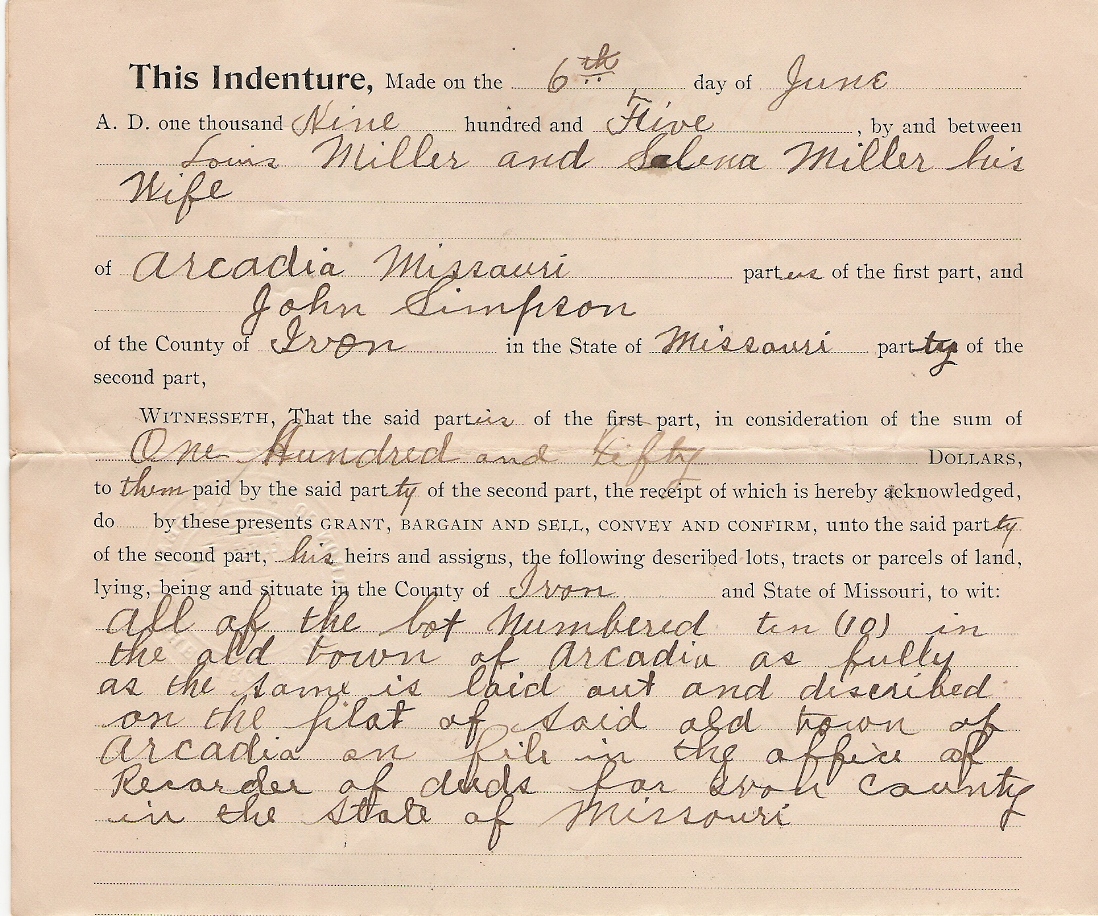 This Indenture, Made on the 6th day of June
A. D. one thousand Nine hundred and Five, by and between
Louis Miller and Salena Miller his
Wife
of Arcadia Missouri parties of the first part, and
John Simpson
of the County of Iron in the State of Missouri party of the
second part,
WITNESSETH, That the said parties of the first part, in consideration of the sum of
One Hundred and Fifty DOLLARS,
to them paid by the said party of the second part, the receipt of which is hereby acknowledged,
do by these presents GRANT, BARGAIN AND SELL, CONVEY AND CONFIRM, unto the said party
of the second part, his heirs and assigns, the following described lots, tracts or parcels of land,
lying, being and situate in the County of Iron and State of Missouri, to wit:
All of the Lot Numbered ten (10) in
the old town of Arcadia as fully
as the same is laid out and discribed
on the plat of said old town of
Arcadia on file in the office of
Recorder of deeds for Iron County
in the State of Missouri